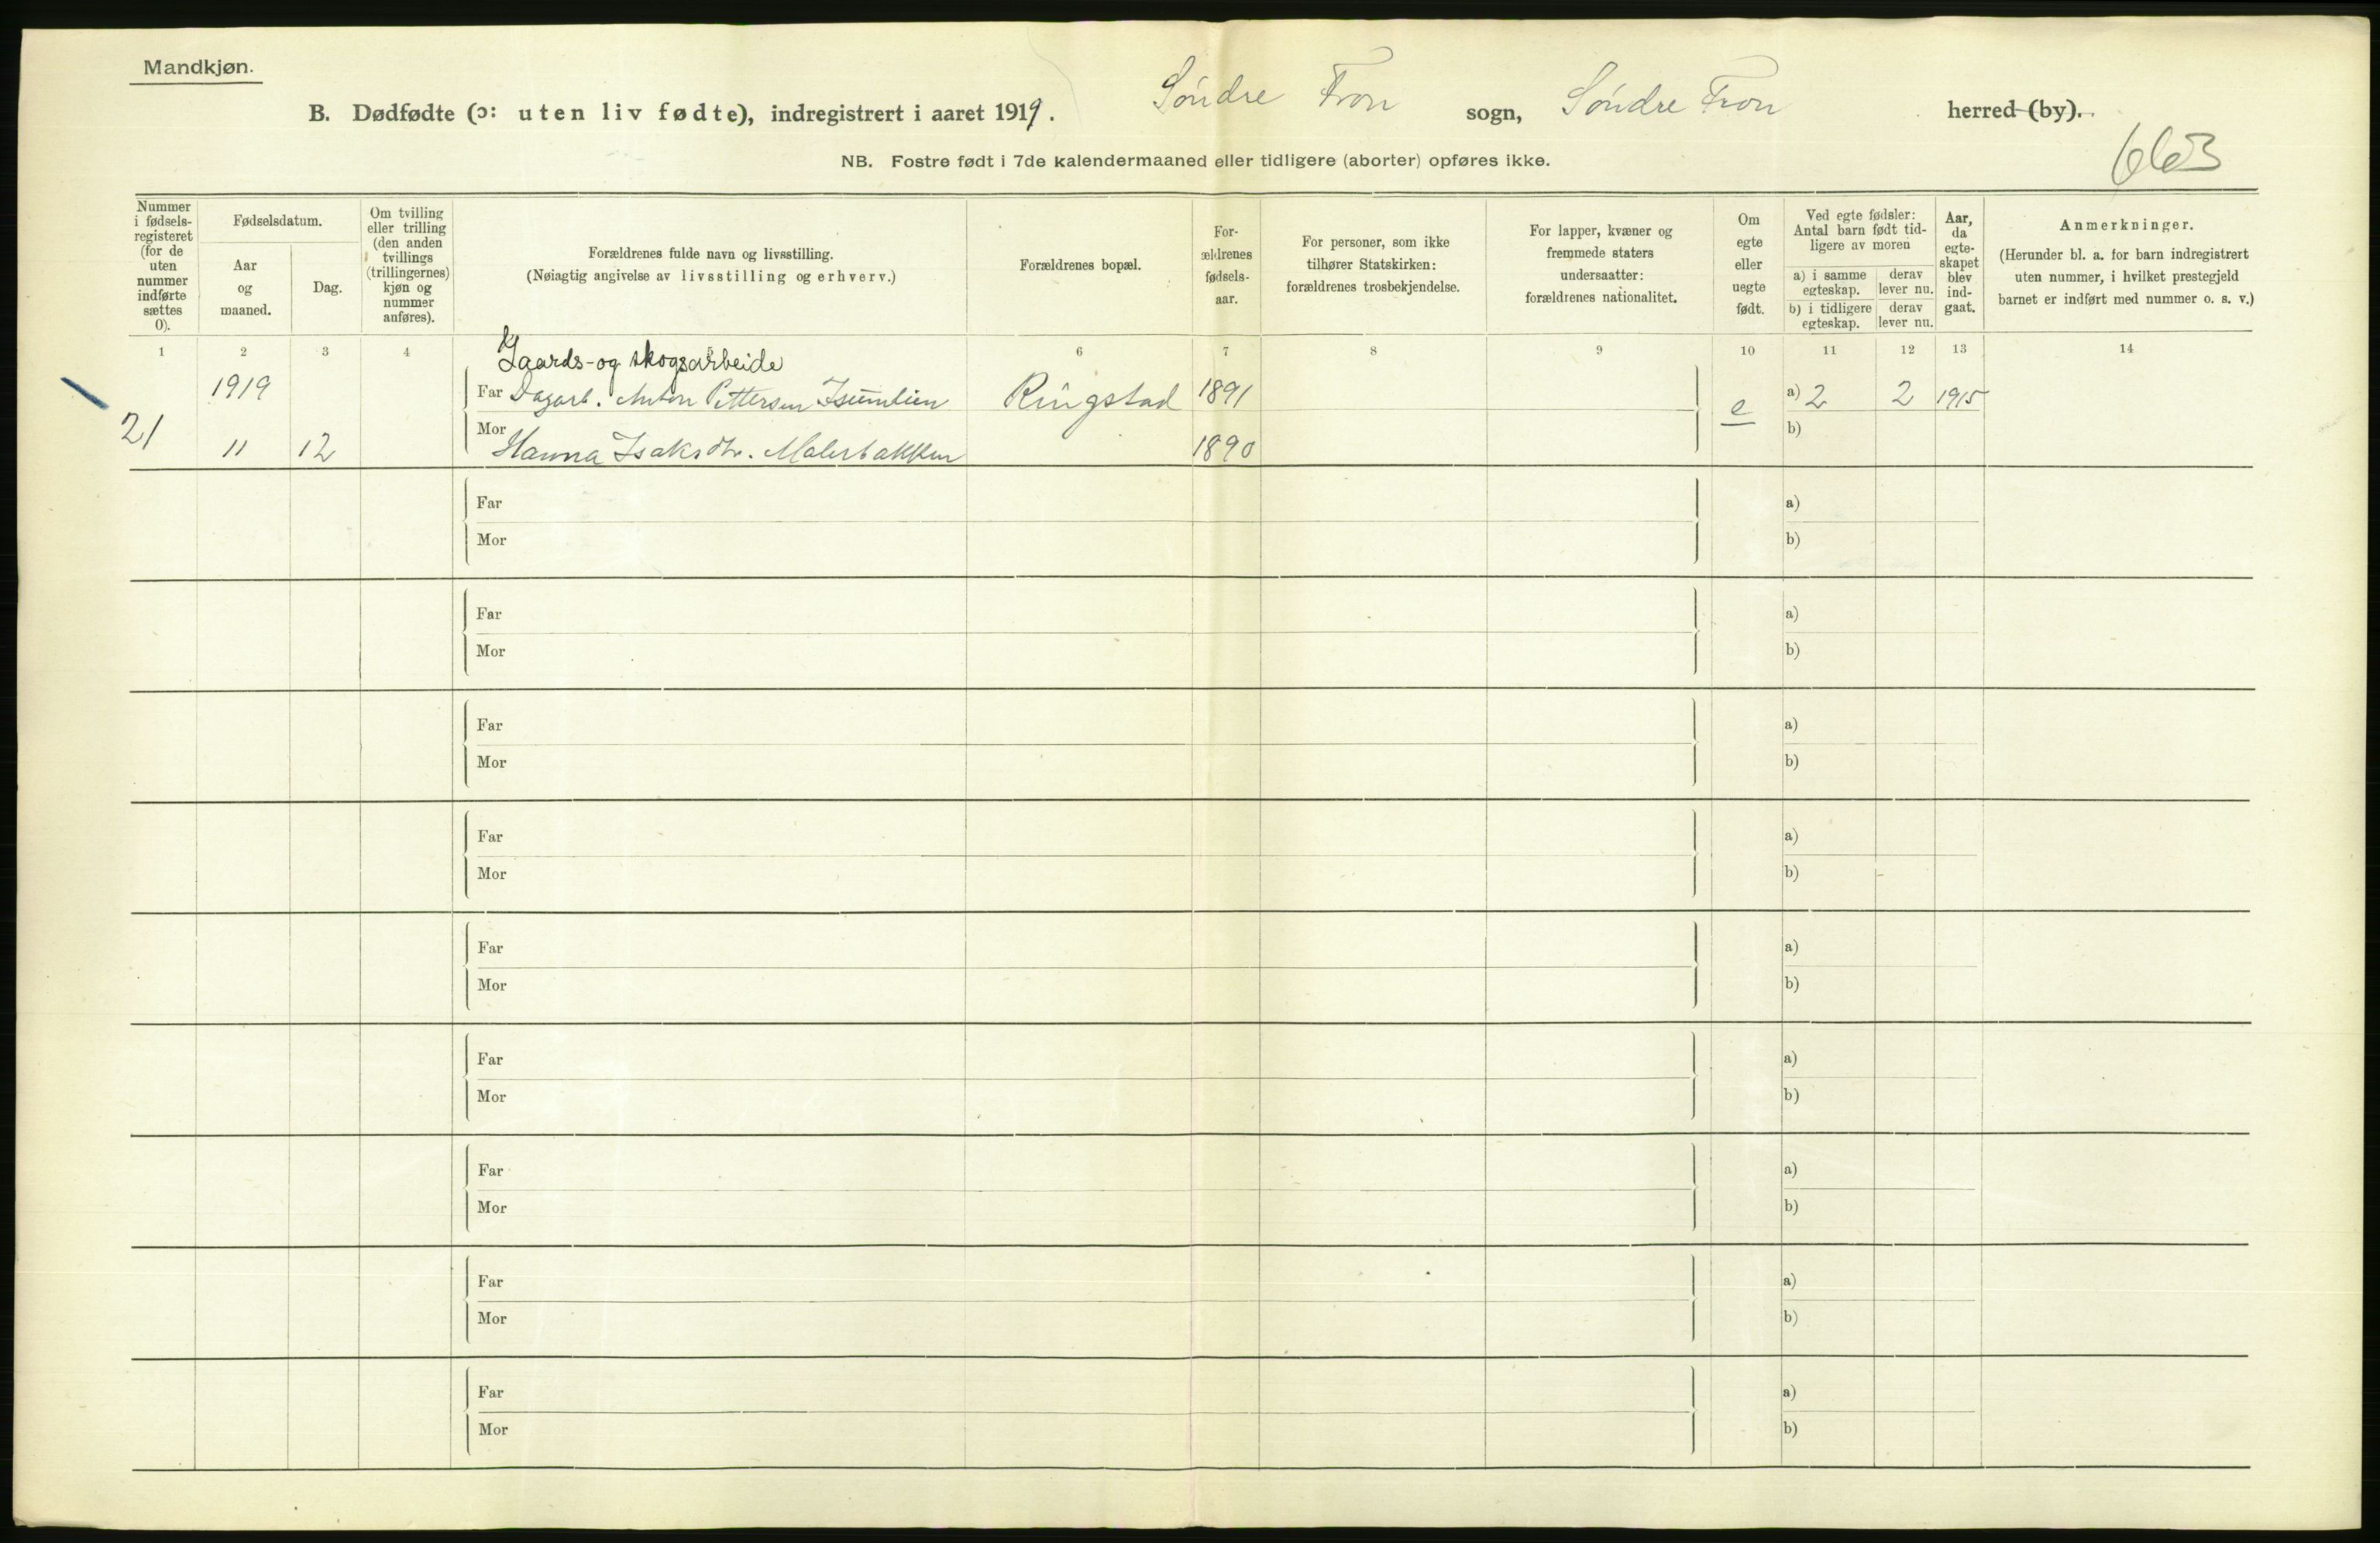 Mandkjøn.
B. Dødfødte (ɔ: uten liv fødte), indregistrert i aaret 1919. Söndre Fron sogn, Söndre Fron herred (by).
663
NB. Fostre født i 7de kalendermaaned eller tidligere (aborter) opføres ikke.
Nummer i fødselsregisteret (for de uten nummer indførte sættes 0).
Fødselsdatum.
Aar og maaned.
Dag.
Om tvilling eller trilling (den anden tvillings (trillingernes) kjøn og nummer anføres).
Forældrenes fulde navn og livsstilling.
(Nøiagtig angivelse av livsstilling og erhverv.)
Forældrenes bopæl.
For-ældrenes fødsels-aar.
For personer, som ikke tilhører Statskirken: forældrenes trosbekjendelse.
For lapper, kvæner og fremmede staters undersaatter: forældrenes nationalitet.
Om egte eller uegte født.
Ved egte fødsler: Antal barn født tidligere av moren
a) i samme egteskap. derav lever nu.
b) i tidligere egteskap. derav lever nu.
Aar, da egteskapet blev indgaat.
Anmerkninger.
(Herunder bl. a. for barn indregistrert uten nummer, i hvilket prestegjeld barnet er indført med nummer o. s. v.)
1 2 3 4 6 7 8 9 10 11 12 13 14
Gaards- og skogsarbeide
1919 Far Dagarb. Anton Pettersen Isumlien Ringstad 1891 e a) 2 2 1915
21 11 12 Mor Hanna Isaksdtr. Malerbakken 1890 b)
Far a)
Mor b)
Far a)
Mor b)
Far a)
Mor b)
Far a)
Mor b)
Far a)
Mor b)
Far a)
Mor b)
Far a)
Mor b)
Far a)
Mor b)
Far a)
Mor b)